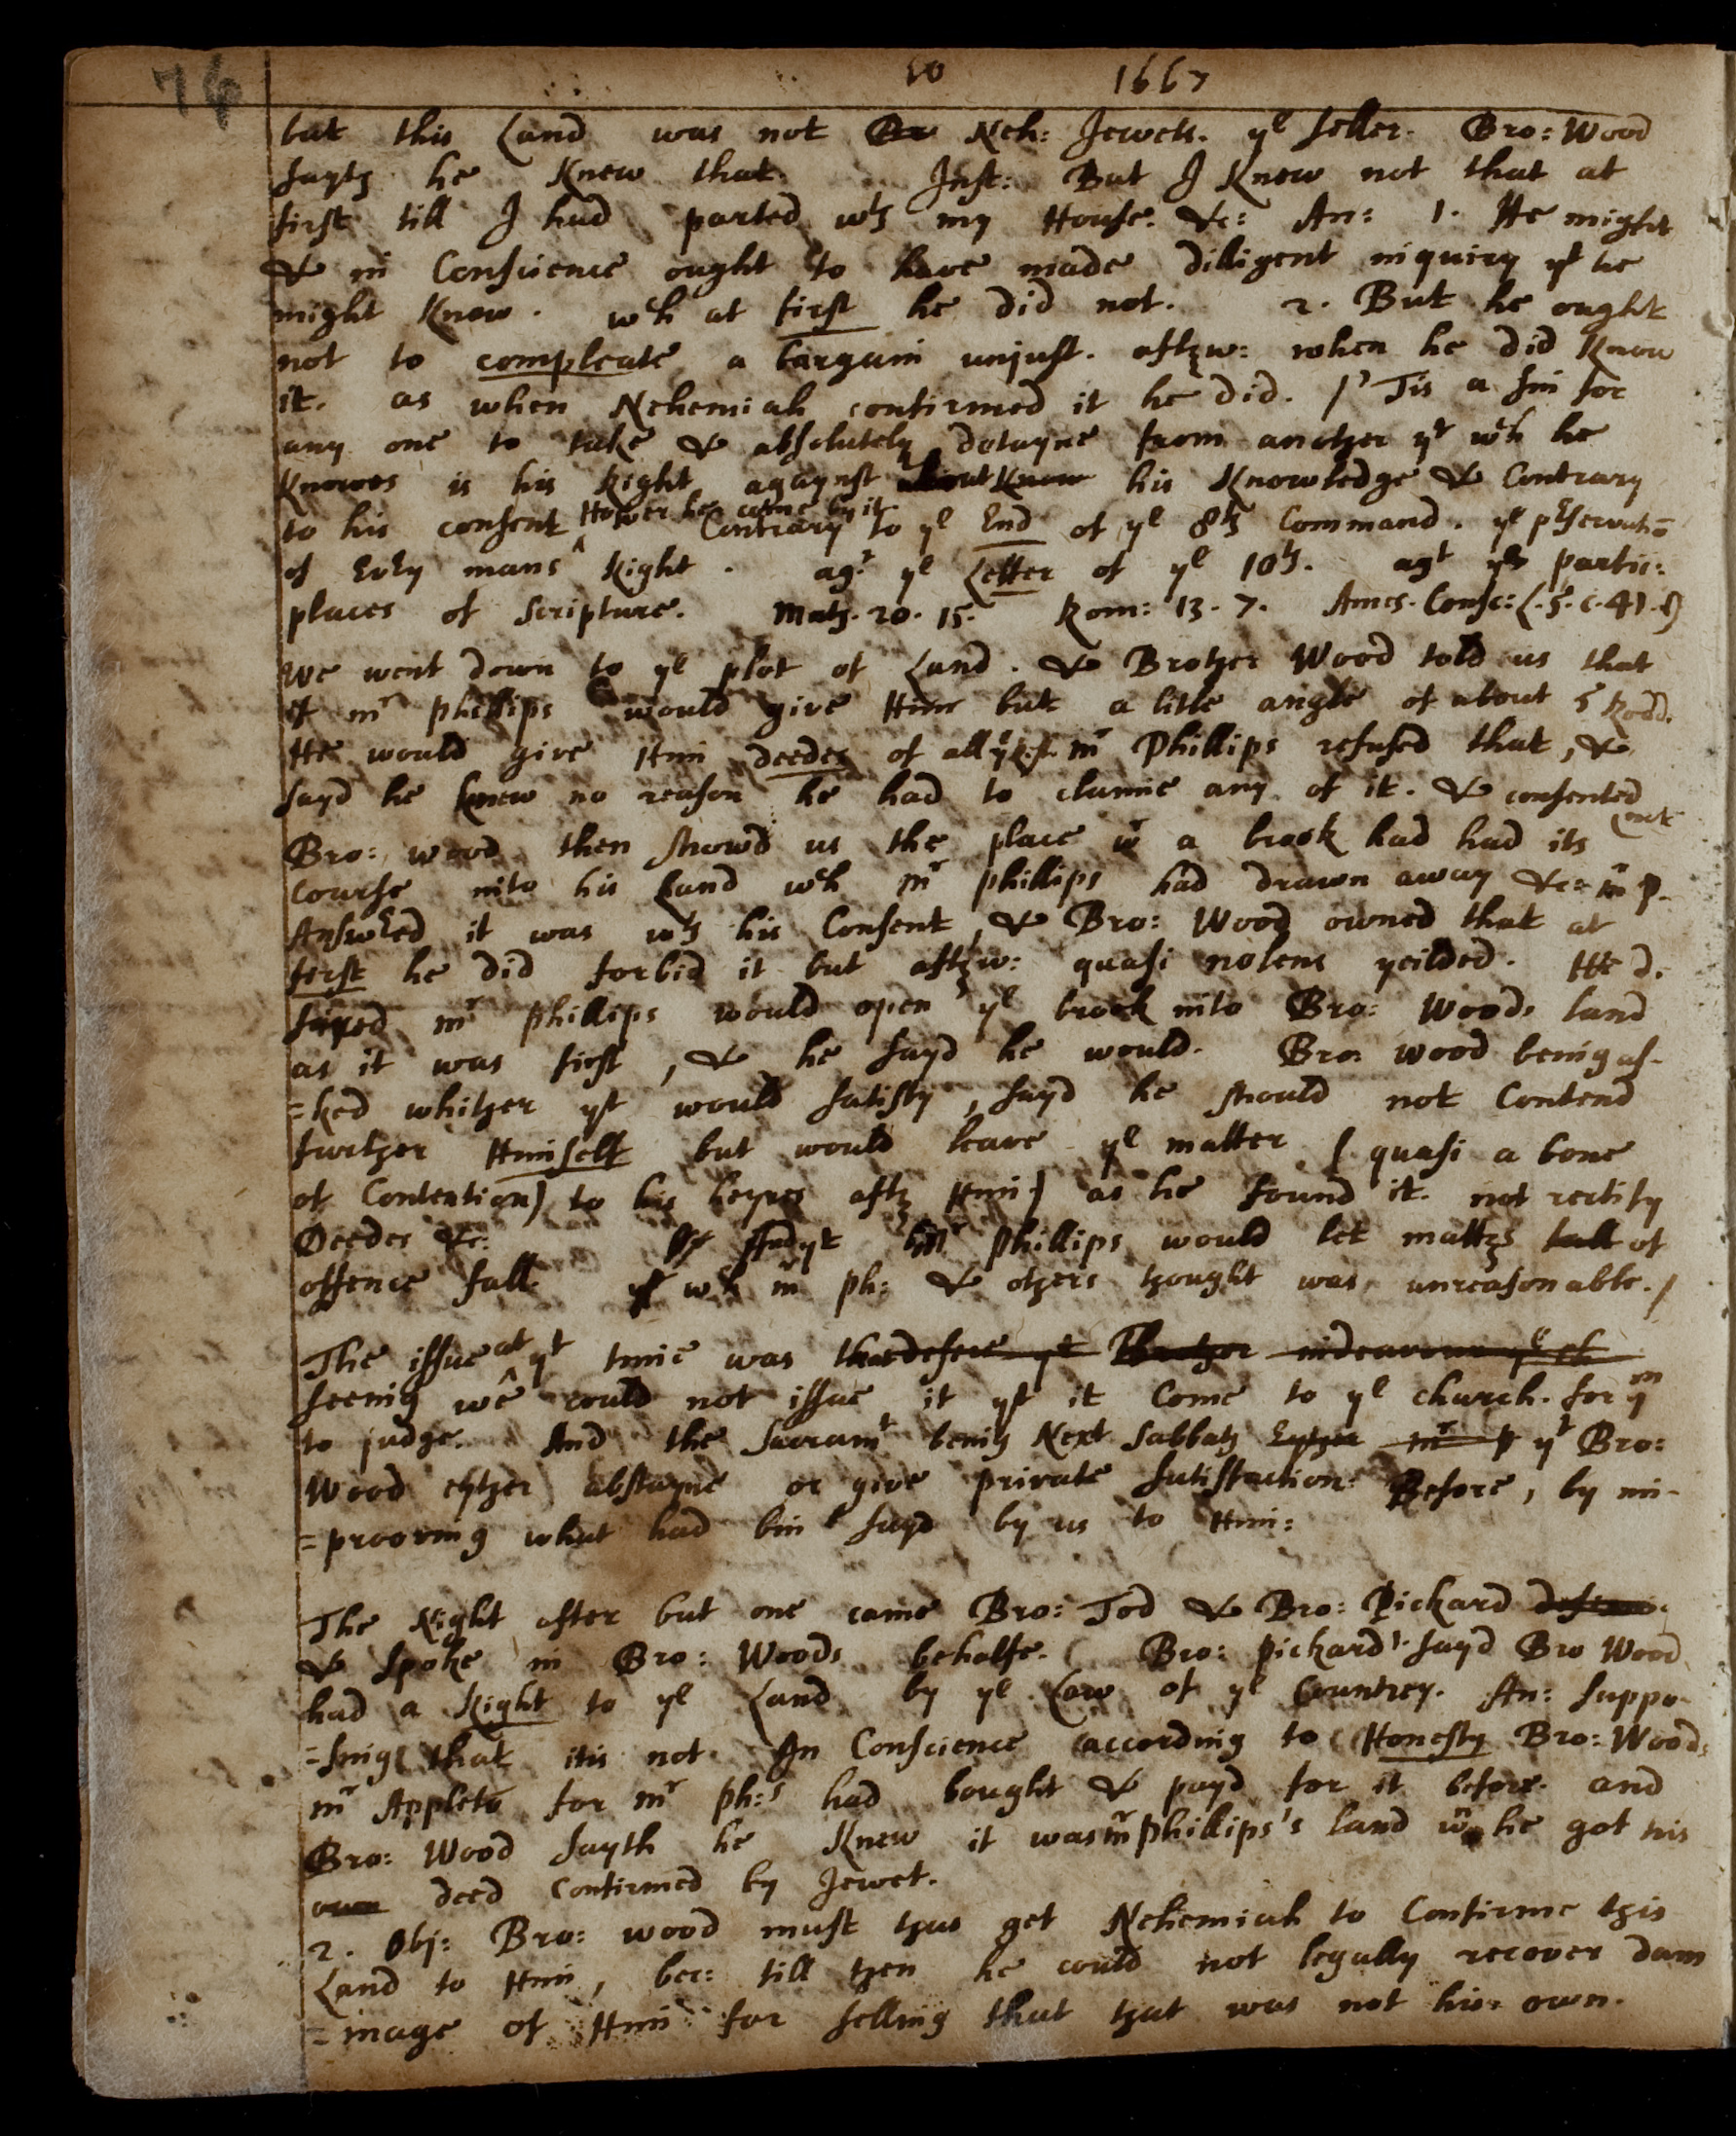 74
10 1667
but this Land was not Neh: Jewets. ye seller. Bro: Wood
sayth he Knew that. Inst: But I Knew not that at
first till I had parted wth my House. &c: An: 1. He might
& in Conscience ought to have made diligent inquiry yt he
might Know. wch at first he did not. 2. But he ought
not to compleate a bargain unjust. afterw: when he did Know
it. as when Nehemiah confirmed it he did. / 'Tis a sin for
any one to take & absolutely detayne from another yt wch he
Knowes is his Right agaynst his Knowledge & Contrary
to his consent However he come by it Contrary to ye End of ye 8th Command. ye pservatiō
of Every mans ^ Right. agt ye Letter of ye 10th. agt ys partic:
places of Scripture. Math. 20. 15. Rom: 13. 7. Ames. Consc: l. 5. c. 41.
We went down to ye plot of Land. & Brother Wood told us that
if mr phillips would give Him but a litle angle of about 5 Rodd.
He would give Him deedes of all ye rest. mr Phillips refused that, &
sayd he knew no reason he had to claime any of it. & consented
(not
Bro: wood then showd us the place wr a brook had had its
course into his Land wch mr phillips had drawn away &c: mr p.
Answered it was wth his Consent, & Bro: Wood owned that at
first he did forbid it but afterw: quasi nolens yeilded. He d.
sayed mr phillips would open ye brook into Bro: Woods land
as it was first, & he sayd he would. Bro: wood being as-
=ked whither yt would satisfy, sayd he should not Contend
further Himself but would leave ye matter (quasi a bone
of Contention) to his heyres after Him) as he found it. not rectify
Deedes &c: mr phillips would let matters fall of
offence fall. wch mr ph: & others thought was unreasonable. /
The issue at ^ yt time was
seeing we could not issue it yt it Come to ye church. for ym
to judge. And the Sacramt being Next Sabbath Eyther mr p yt Bro:
Wood eyther abstayne or give private satisfaction: Before, by im-
=prooving what had bin sayd by us to Him:
The Night after but one came Bro: Tod & Bro: Pickard
& spoke in Bro: Woods behalfe. Bro: pickard 1. sayd Bro Wood
had a Right to ye Land by ye Law of ye Countrey. An: Suppo-
=sing that itis not In Conscience according to Honesty Bro: Woods
mr Appletō for mr ph:s had bought & payd for it before. and
Bro: Wood sayth he Knew it was mr phillips's land wn he got his
own deed confirmed by Jewet.
2. Obj: Bro: wood must thus get Nehemiah to Confirme this
Land to Him, bec: till then he could not legally recover dam
=mage of Him for selling that that was not his own.